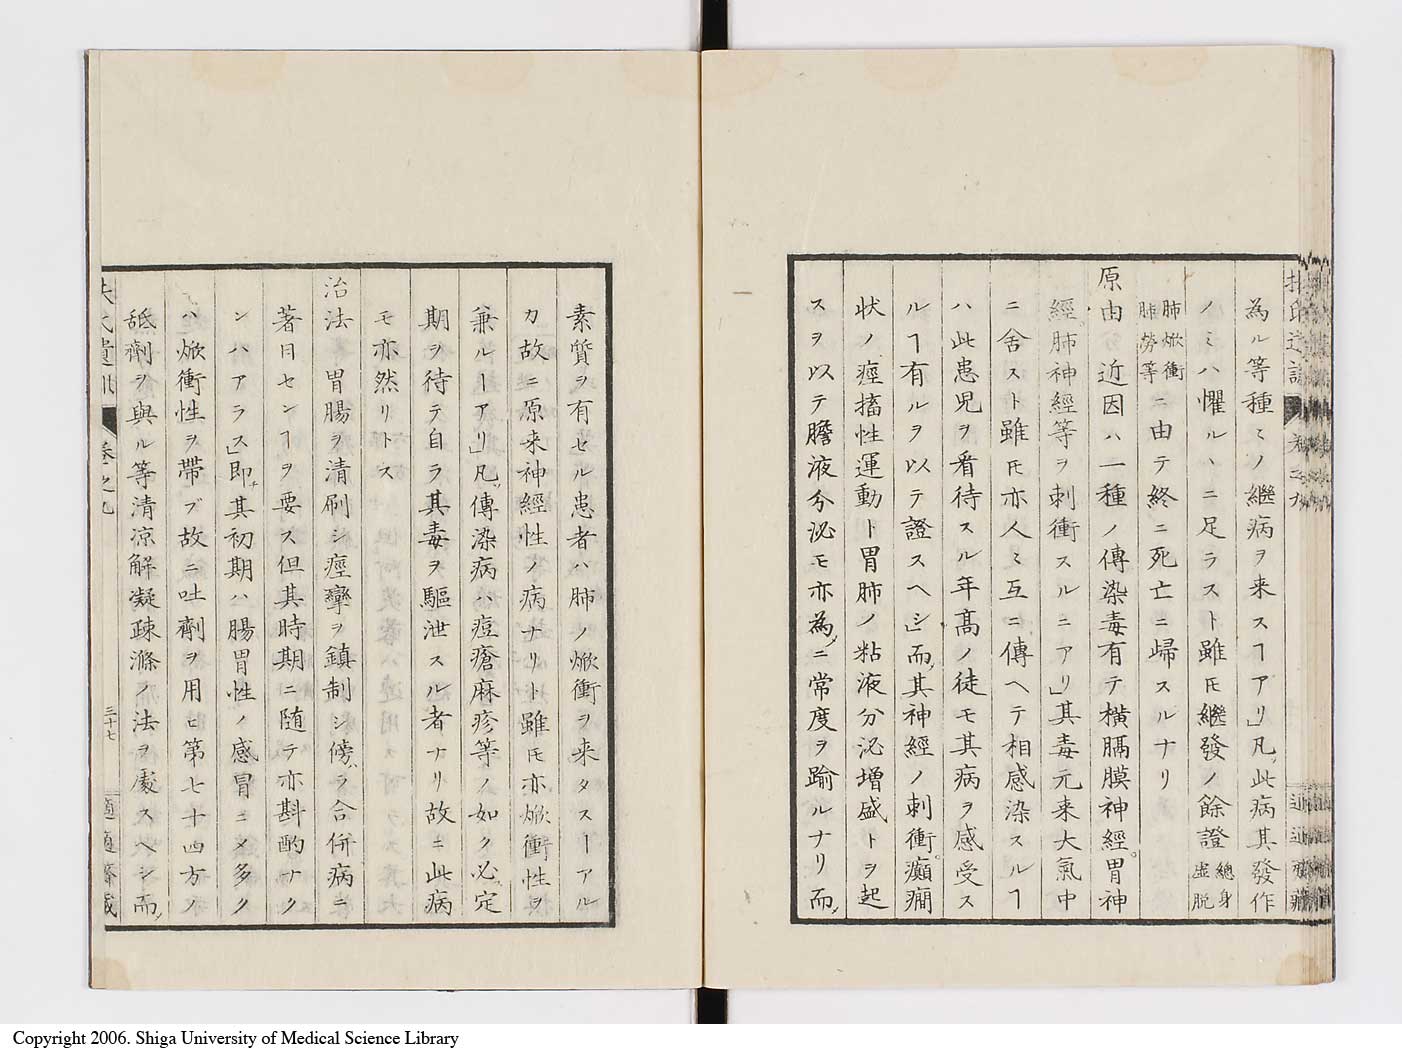 為ル等種〻ノ継病ヲ来スヿアリ」凡ソ此病其發作
ノミハ懼ルヽニ足ラスト雖𪜈継發ノ餘證 總身虚脱
肺焮衝肺勞等ニ由テ終ニ死亡ニ歸スルナリ
原由 近因ハ一種ノ傳染毒有テ橫膈膜神經。胃神
經。肺神經等ヲ刺衝スルニアリ」其毒元来大氣中
ニ舍スト雖𪜈亦人〻互ニ傳ヘテ相感染スルヿ
ハ此患児ヲ看待スル年髙ノ徒モ其病ヲ感受ス
ルヿ有ルヲ以テ證スヘシ」而メ其神經ノ刺衝。癲癇
状ノ痙搐性運動ト胃肺ノ粘液分泌増盛トヲ起
スヲ以テ膽液分泌モ亦為メニ常度ヲ踰ルナリ而メ
素質ヲ有セル患者ハ肺ノ焮衝ヲ来タスヿアル
カ故ニ原来神經性ノ病ナリト雖𪜈亦焮衝性ヲ
兼ルヿアリ」凡ソ傳染病ハ痘瘡麻疹等ノ如ク必ス定
期ヲ待テ自ラ其毒ヲ驅泄スル者ナリ故ニ此病
モ亦然リトス
治法 胃腸ヲ清刷シ痙攣ヲ鎮制シ傍ラ合併病ニ
著目センヿヲ要ス但其時期ニ随テ亦斟酌ナク
ンハアラス」即チ其初期ハ腸胃性ノ感冒ニメ多ク
ハ焮衝性ヲ帶ブ故ニ吐劑ヲ用ヒ第七十四方ノ
舐劑ヲ與ル等清凉解凝疎滌ノ法ヲ處スヘシ而メ
氏遺訓
巻之九
三十七
適適齋藏